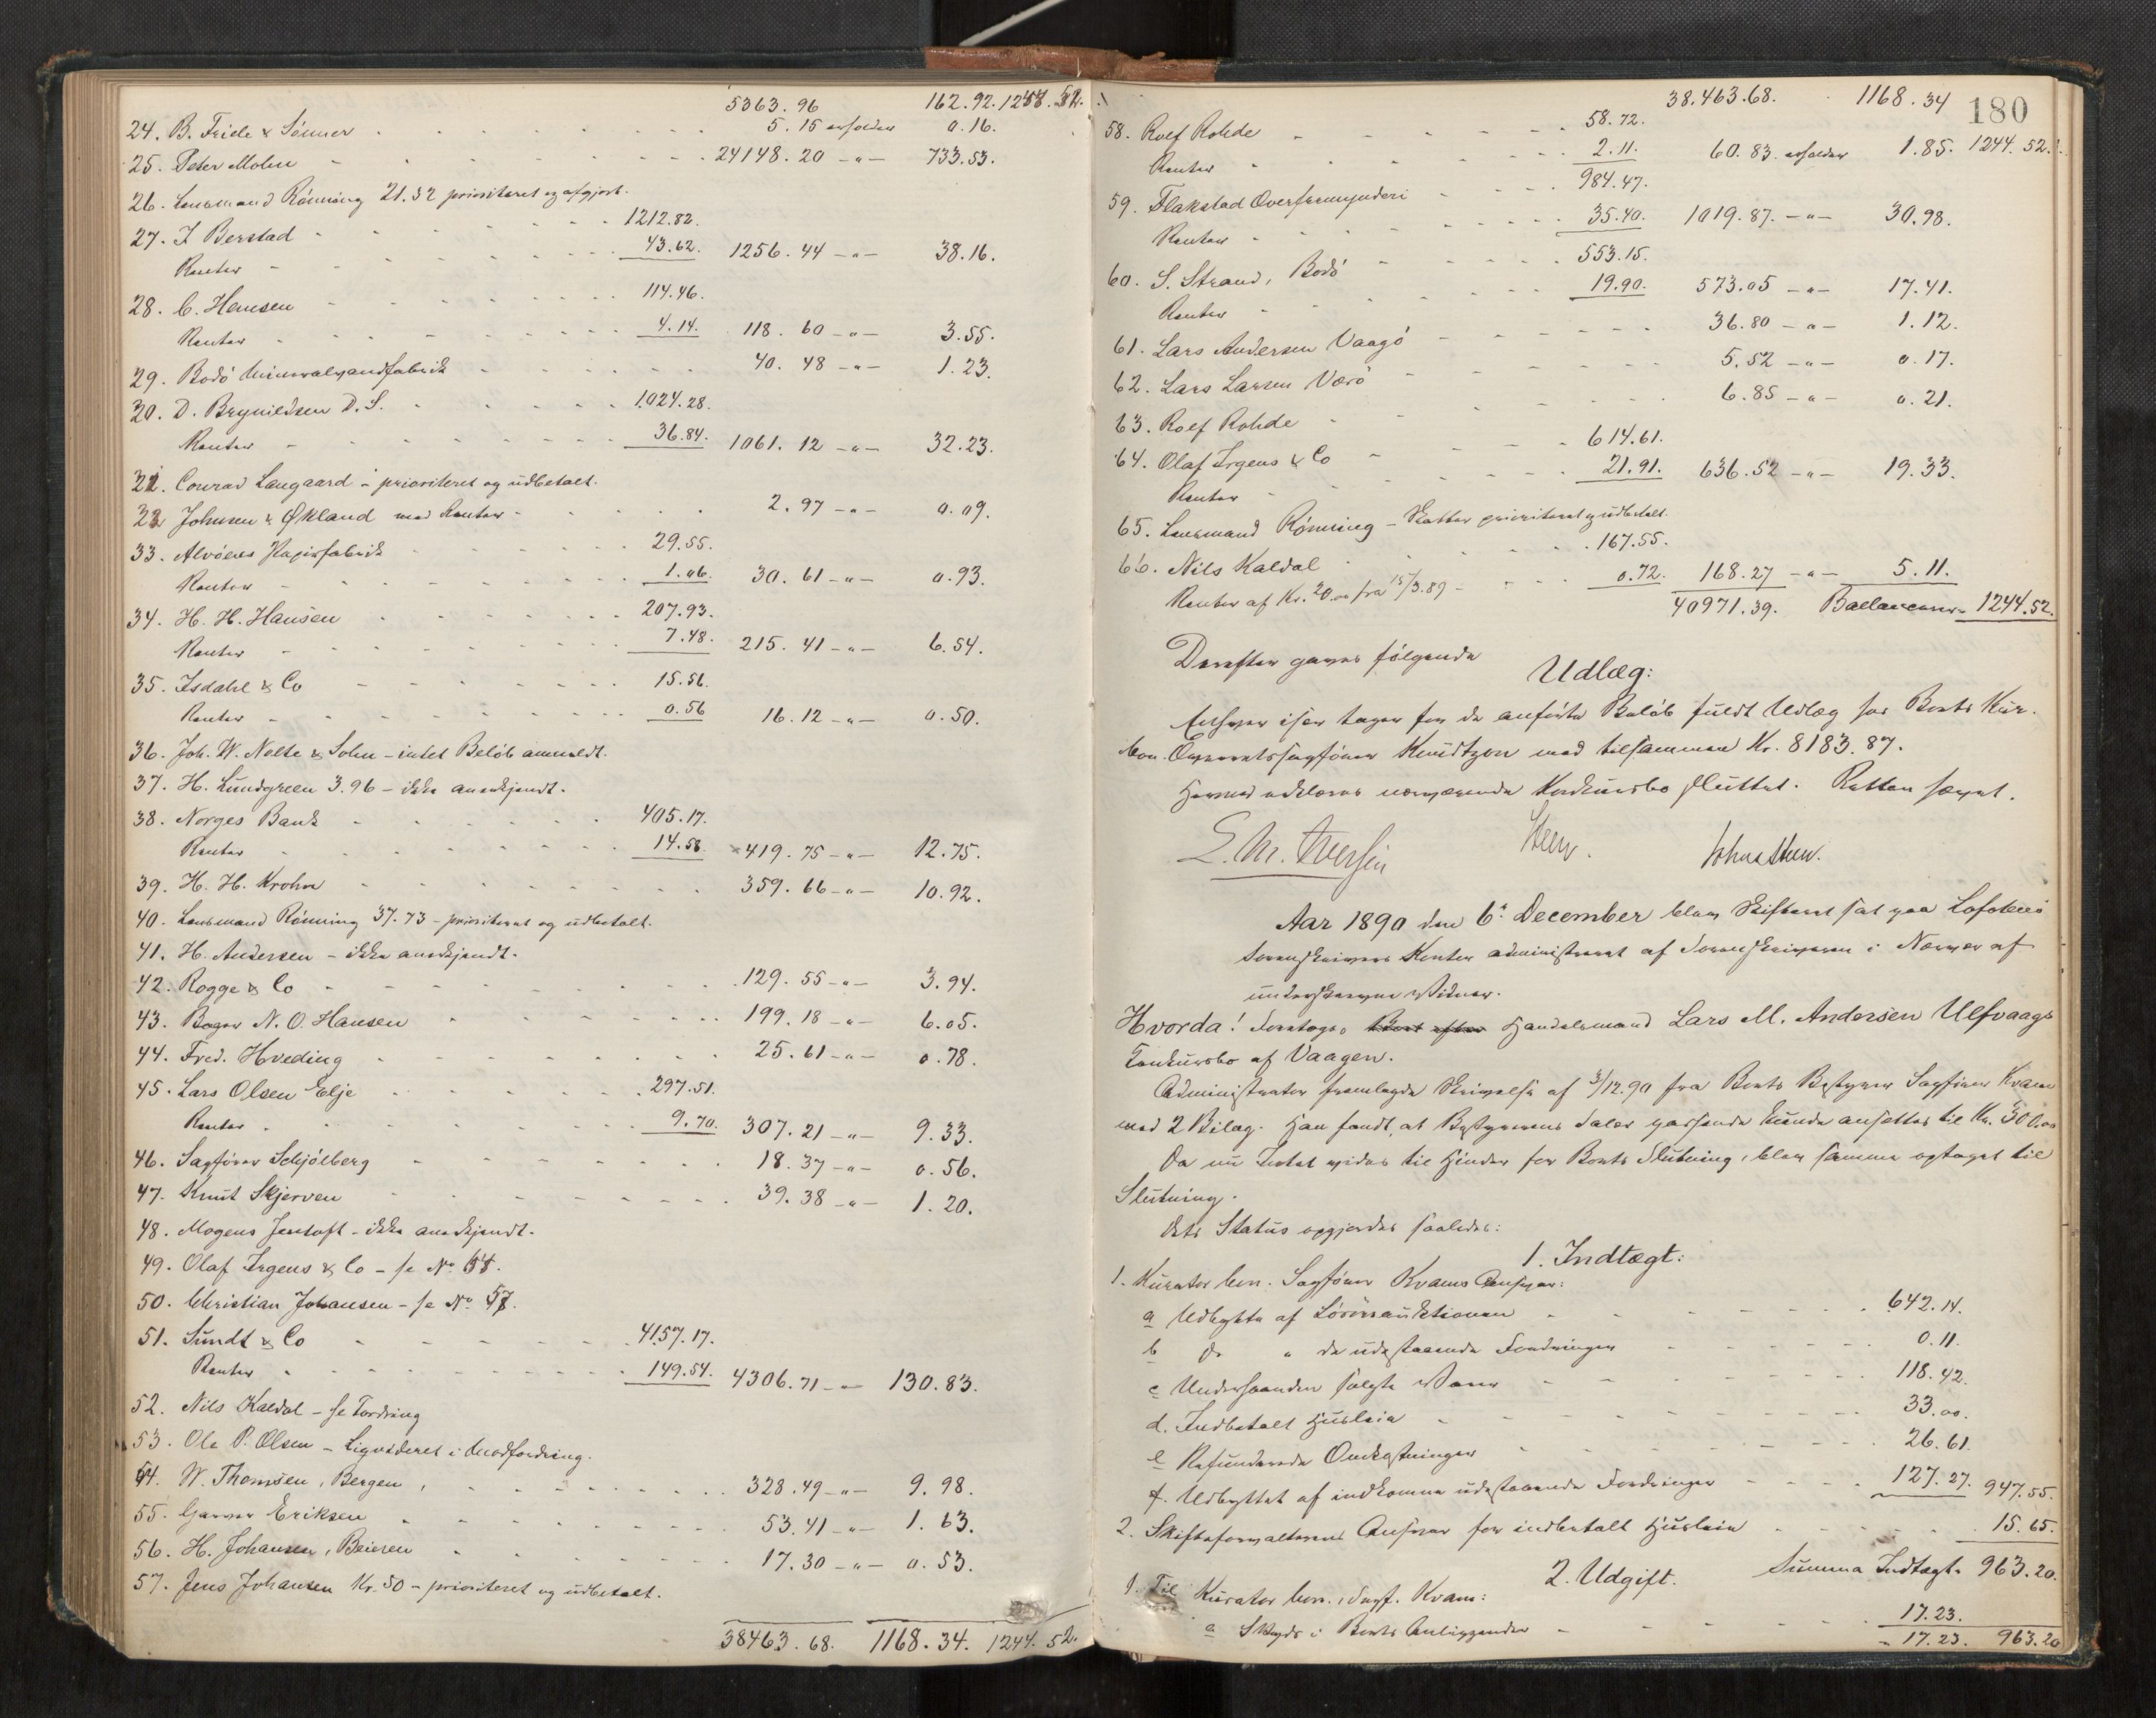 5363.96 162.92. 1244.52.
24. B. Friele & Sönner 5.15 erholder 0.16.
25. Peter Mohn 24148.20 -"- 733.53.
26. Lensmand Rönning 21.32 prioriteret og afgjort.
27. I Berstad 1212.82.
Renter 43.62. 1256.44 -"- 38.16.
28. C. Hansen 114.46.
Renter 4.14. 118.60 -"- 3.55.
29. Bodö Mineralvandfabrik 40.48 -"- 1.23.
30. D. Brynildsen D. S. 1024.28.
Renter 36.84. 1061.12 -"- 32.23.
31. Conrad Langaard - prioriteret og udbetalt.
32. Johnsen & Økland med Renter 2.97 -"- 0.09.
33. Alvöens Papirfabrik 29.55.
Renter 1.06. 30.61 -"- 0.93.
34. H. H. Hansen 207.93.
Renter 7.48. 215.41 -"- 6.54.
35. Isdahl & Co 15.56.
Renter 0.56 16.12 -"- 0.50.
36. Joh. W. Nolte & Sohn - intet Belöb anmeldt.
37. H. Lundgreen 3.96 - ikke anerkjendt.
38. Norges Bank 405.17.
Renter 14.58. 419.75 -"- 12.75.
39. H. H. Krohn 359.66 -"- 10.92.
40. Lensmand Rönning 37.73 - prioriteret og udbetalt.
41. H. Andersen - ikke anerkjendt.
42. Rogge & Co 129.55 -"- 3.94.
43. Bager N. O. Hansen 199.18 -"- 6.05.
44. Fred. Hveding 25.61 -"- 0.78.
45. Lars Olsen Elje 297.51.
Renter 9.70. 307.21 -"- 9.33.
46. Sagförer Schjölberg 18.37 -"- 0.56.
47. Knut Skjerven 39.38 -"- 1.20.
48. Mogens Jentoft - ikke anerkjendt.
49. Olaf Irgens & Co - se No 64.
50. Christian Johansen - se No 57.
51. Sundt & Co 4157.17.
Renter 149.54. 4306.71 -"- 130.83.
52. Nils Kaldal - se Fordring
53. Ole P. Olsen - Ligvideret i Modfordring.
54. W. Thomsen, Bergen, 328.49 -"- 9.98.
55. Garver Eriksen 53.41 -"- 1.63.
56. H. Johansen, Beieren 17.30 -"- 0.53.
57. Jens Johansen Kr. 50 - prioriteret og udbetalt.
38463.68. 1168.34. 1244.52.
180
38.463.68. 1168.34
58. Rolf Rohde 58.72.
Renter 2.11. 60.83. erholder 1.85. 1244.52.
59. Flakstad Overformynderi 984.47.
Renter 35.40. 1019.87. -"- 30.98.
60. S. Strand, Bodö 553.15.
Renter 19.90. 573.05 -"- 17.41.
61. Lars Andersen Vaagö 36.80 -"- 1.12.
62. Lars Larsen Værö 5.52 -"- 0.17.
63. Rolf Rohde 6.85 -"- 0.21.
64. Olaf Irgens & Co 614.61.
Renter 21.91. 636.52 -"- 19.33.
65. Lensmand Rönning - Skatter prioriteret og udbetalt.
66. Nils Kaldal 167.55.
Renter af Kr. 20.00 fra 15/3.89 - 0.72. 168.27 -"- 5.11.
40971.39. Ballancerer 1244.52.
Derefter gaves fölgende
Udlæg:
Enhver især tager for de anförte Belöb fuldt Udlæg hos Boets Kur.
bon. Overretssagförer Knudtzon med tilsammen Kr. 8183.87.
Hermed erklæres nærværende Konkursbo sluttet. Retten hævet.
E. M. Iversen
Aar 1890 den 6te December blev Skifteret sat paa Lofotens
Sorenskrivers Kontor administreret af Sorenskriveren i Nærvær af
underskrevne Vidner.
Hvorda! Foretoges Boet efter Handelsmand Lars M. Andersen Ulfvaags
Konkursbo af Vaagen.
Administrator fremlagde Skrivelse af 3/12.90 fra Boets Bestyrer Sagförer Kvam
med 2 Bilag. Han fandt, at Bestyrerens Salær passende kunde ansættes til Kr. 300.00
Da nu Intet vides til Hinder for Boets Slutning, blev samme optaget til
Slutning.
Dets Status opgjordes saaledes:
1. Indtægt:
1. Kurator bon. Sagförer Kvams Ansvar:
a Udbytte af Lösöreauktionen 642.14.
b do " de udestaaende Fordringer 0.11.
c Underhaanden solgte Varer 118.42.
d. Indbetalt Husleie 33.00.
e Refunderede Omkostninger 26.61.
f. Udbyttet af indkomne udestaaende Fordringer 127.27. 947.55.
2. Skifteforvalterens Ansvar for indbetalt Husleie 15.65.
Summa Indtægt 963.20.
2. Udgift.
1. Til Kurator bon., Sagf. Kvam:
a Skyds i Boets Anliggender 17.23.
17.23. 963.20